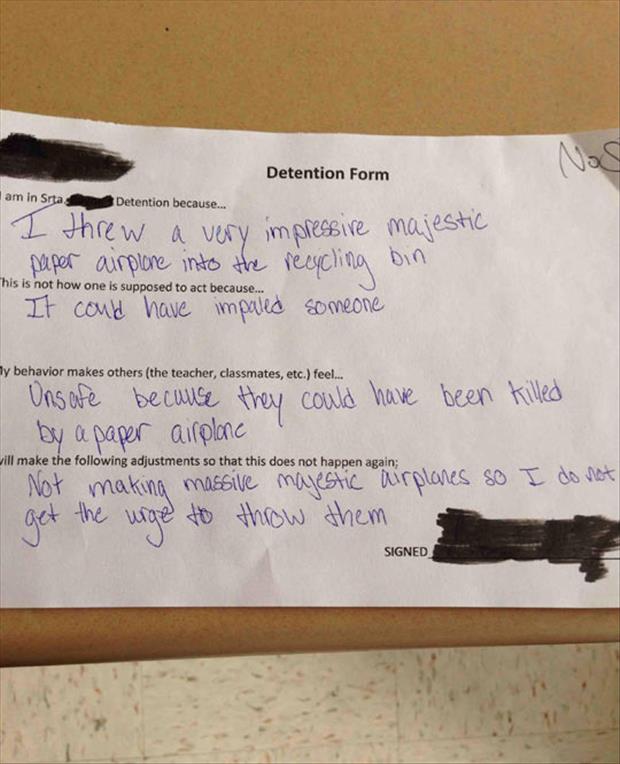 Detention Form
am in Srta. Detention because...
I threw a very impressive majestic
paper airplane into the recycling bin
his is not how one is supposed to act because...
It could have impaled someone
y behavior makes others (the teacher, classmates, etc.) feel...
Unsafe because they could have been killed
by a paper airplane
will make the following adjustments so that this does not happen again;
Not making massive majestic airplanes so I do not
get the urge to throw them
SIGNED